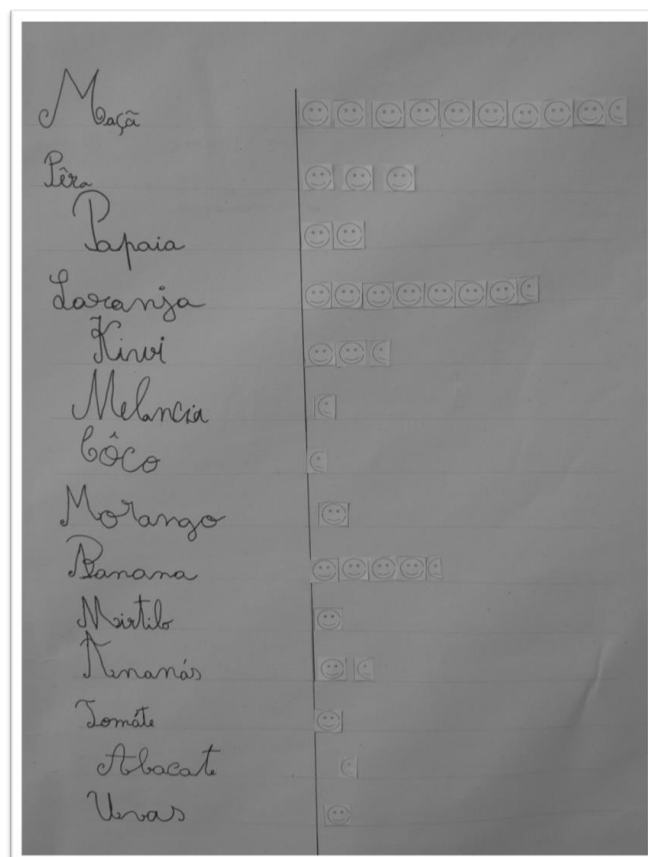 Maçã
Pêra
Papaia
Laranja
Kiwi
Melancia
Côco
Morango
Banana
Mirtilo
Ananás
Tomáte
Abacate
Uvas